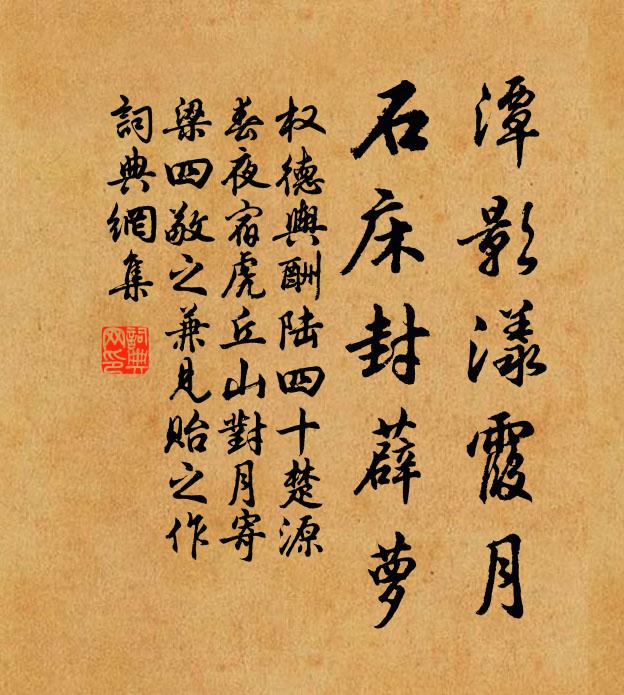 潭影漾霞月
石床封薜萝
权德輿酬陆四十楚源
春夜宿虎丘山對月寄
梁四敬之兼見贻之作
詞典網集
詞典網印